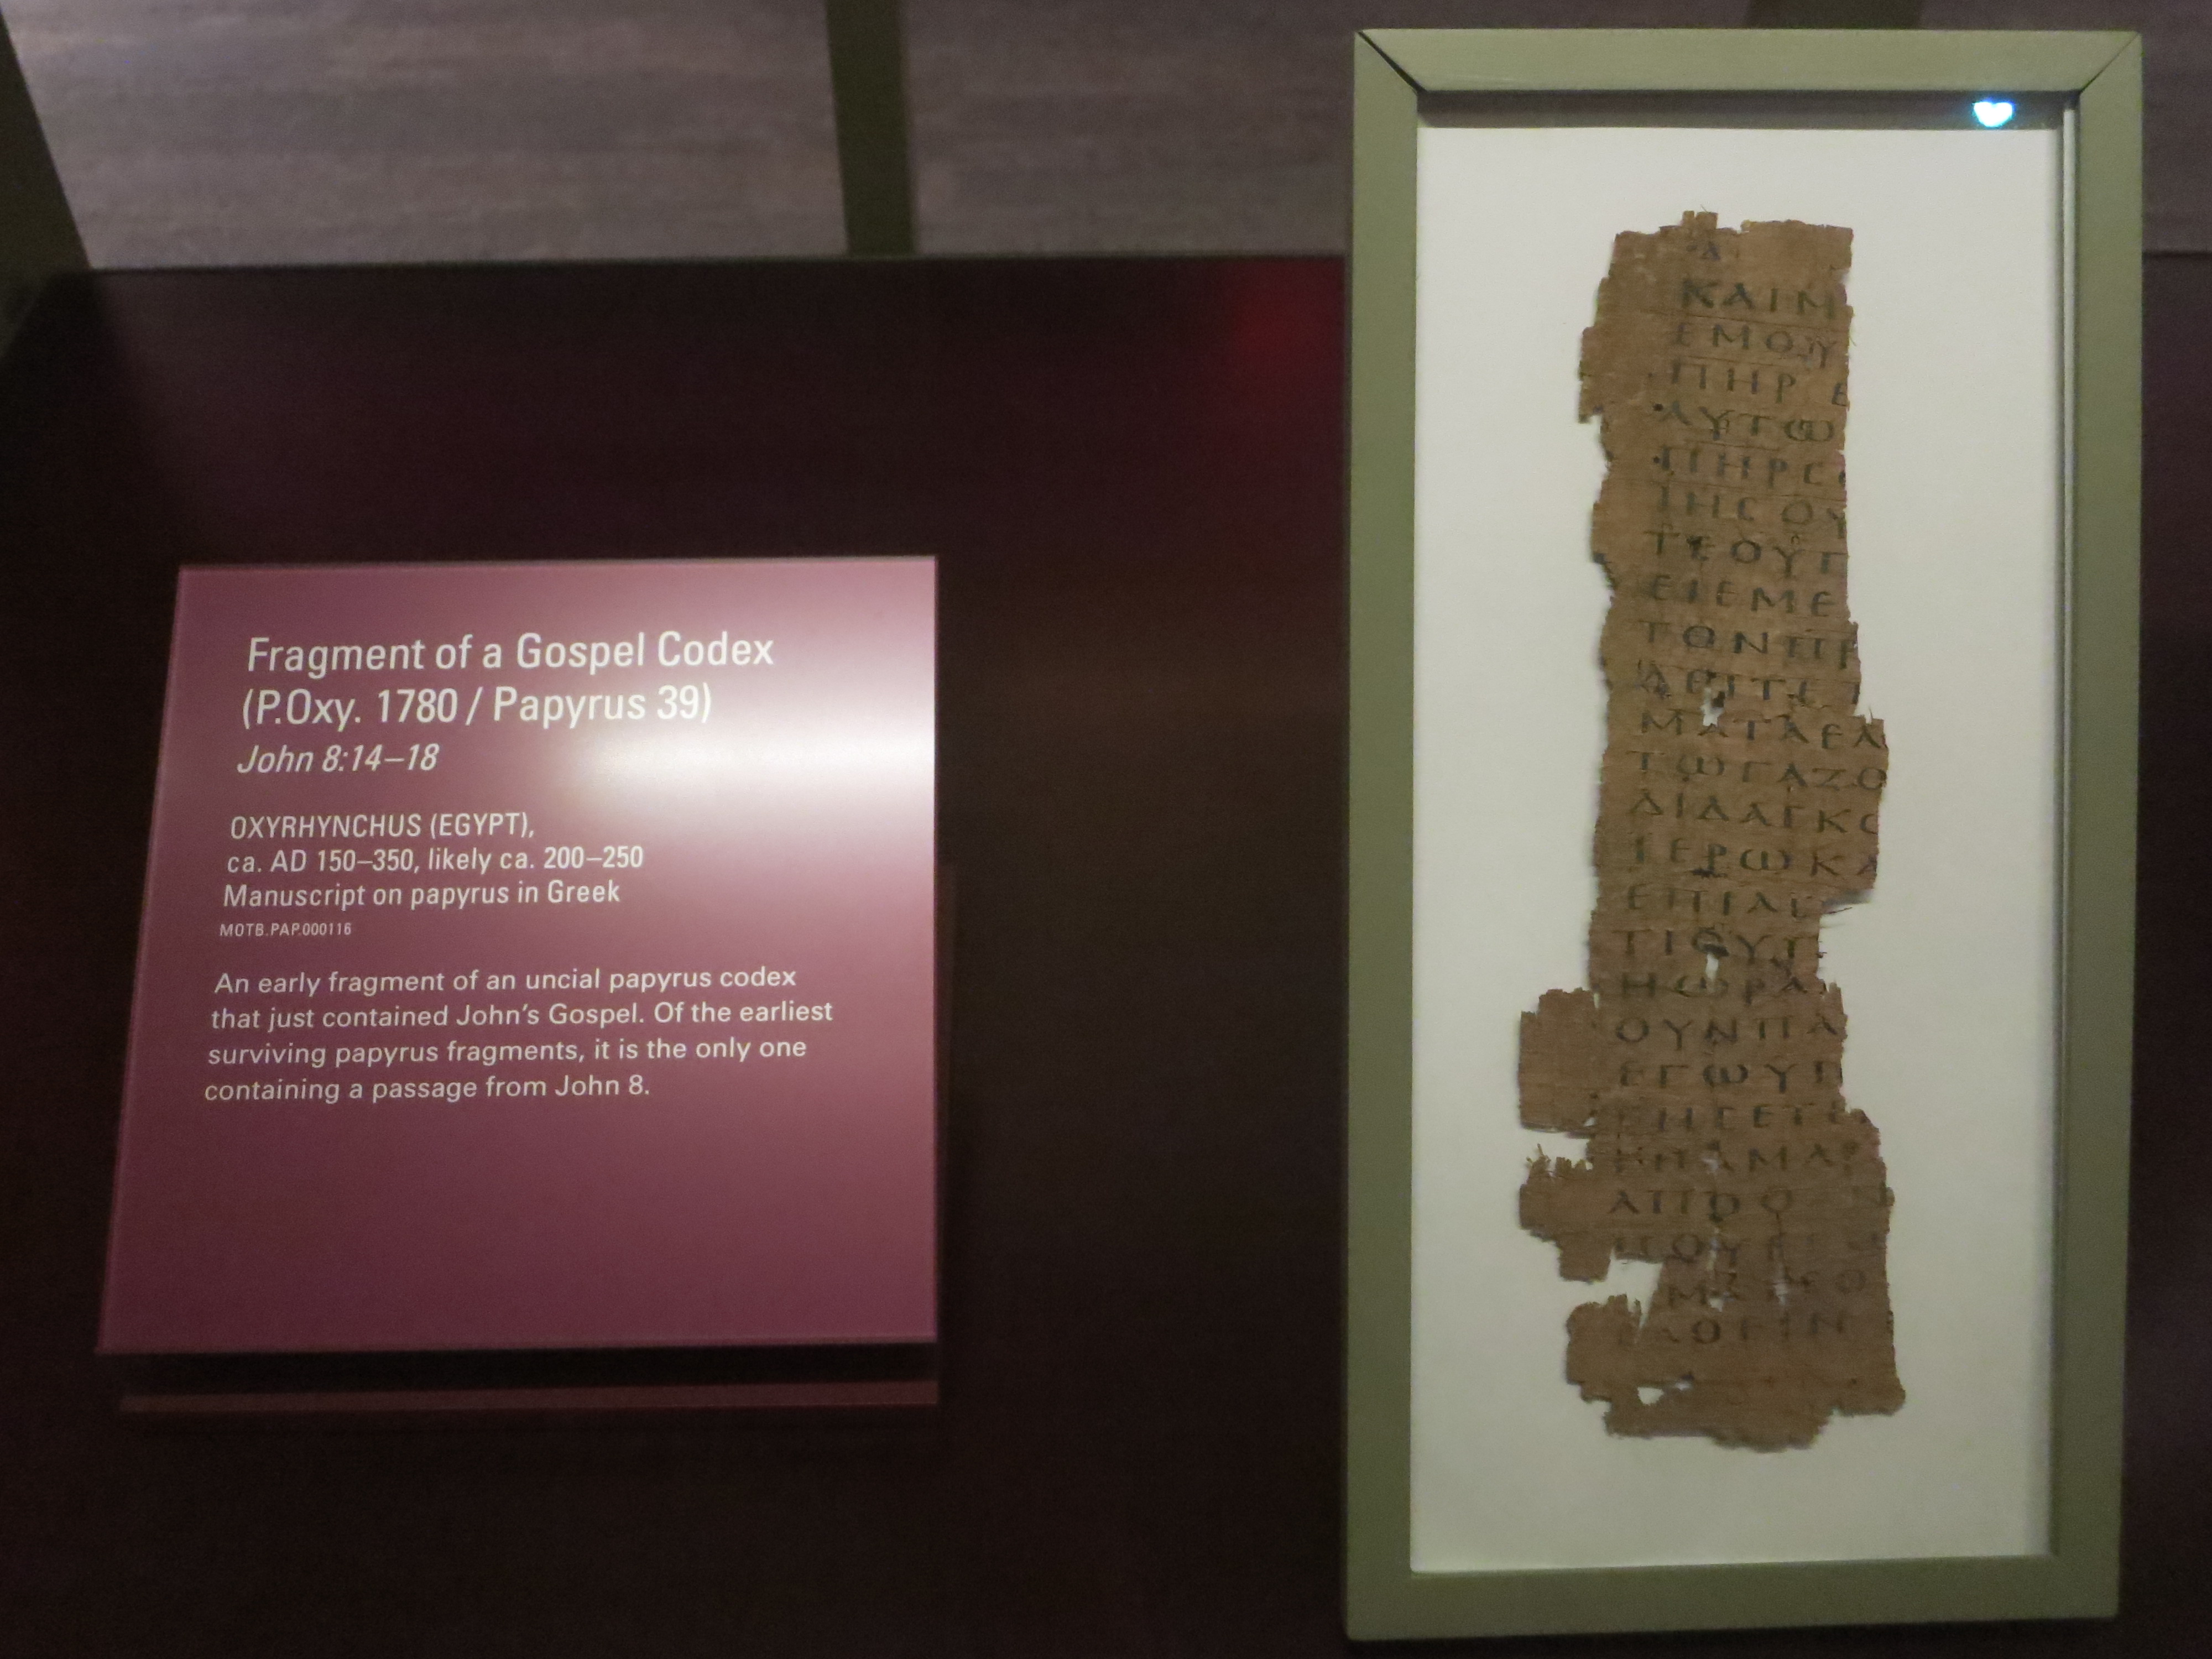 Fragment of a Gospel Codex
(P.Oxy. 1780 / Papyrus 39)
John 8:14–18
OXYRHYNCHUS (EGYPT),
ca. AD 150–350, likely ca. 200–250
Manuscript on papyrus in Greek
MOTB.PAP.000116
An early fragment of an uncial papyrus codex
that just contained John's Gospel. Of the earliest
surviving papyrus fragments, it is the only one
containing a passage from John 8.
ΚΑΙΜ
ΕΜΟΥ
ΠΗΡ Ε
ΑΥΤΩ
ΠΗΡΣ
ΙΗϹΟΥ
ΤΕΟΥΤ
ΕΙΕΜΕ
ΤΟΝΠΡ
ΔΕΙΤΕ
ΜΑΤΑΕΛ
ΤΩΓΑΖΟ
ΔΙΔΑϹΚΩ
ΙΕΡΩΚΑ
ΕΠΙΑϹ
ΤΙΟΥΠ
ΗΩΡΑ
ΟΥΝΠΑ
ΕΓΩΥΠ